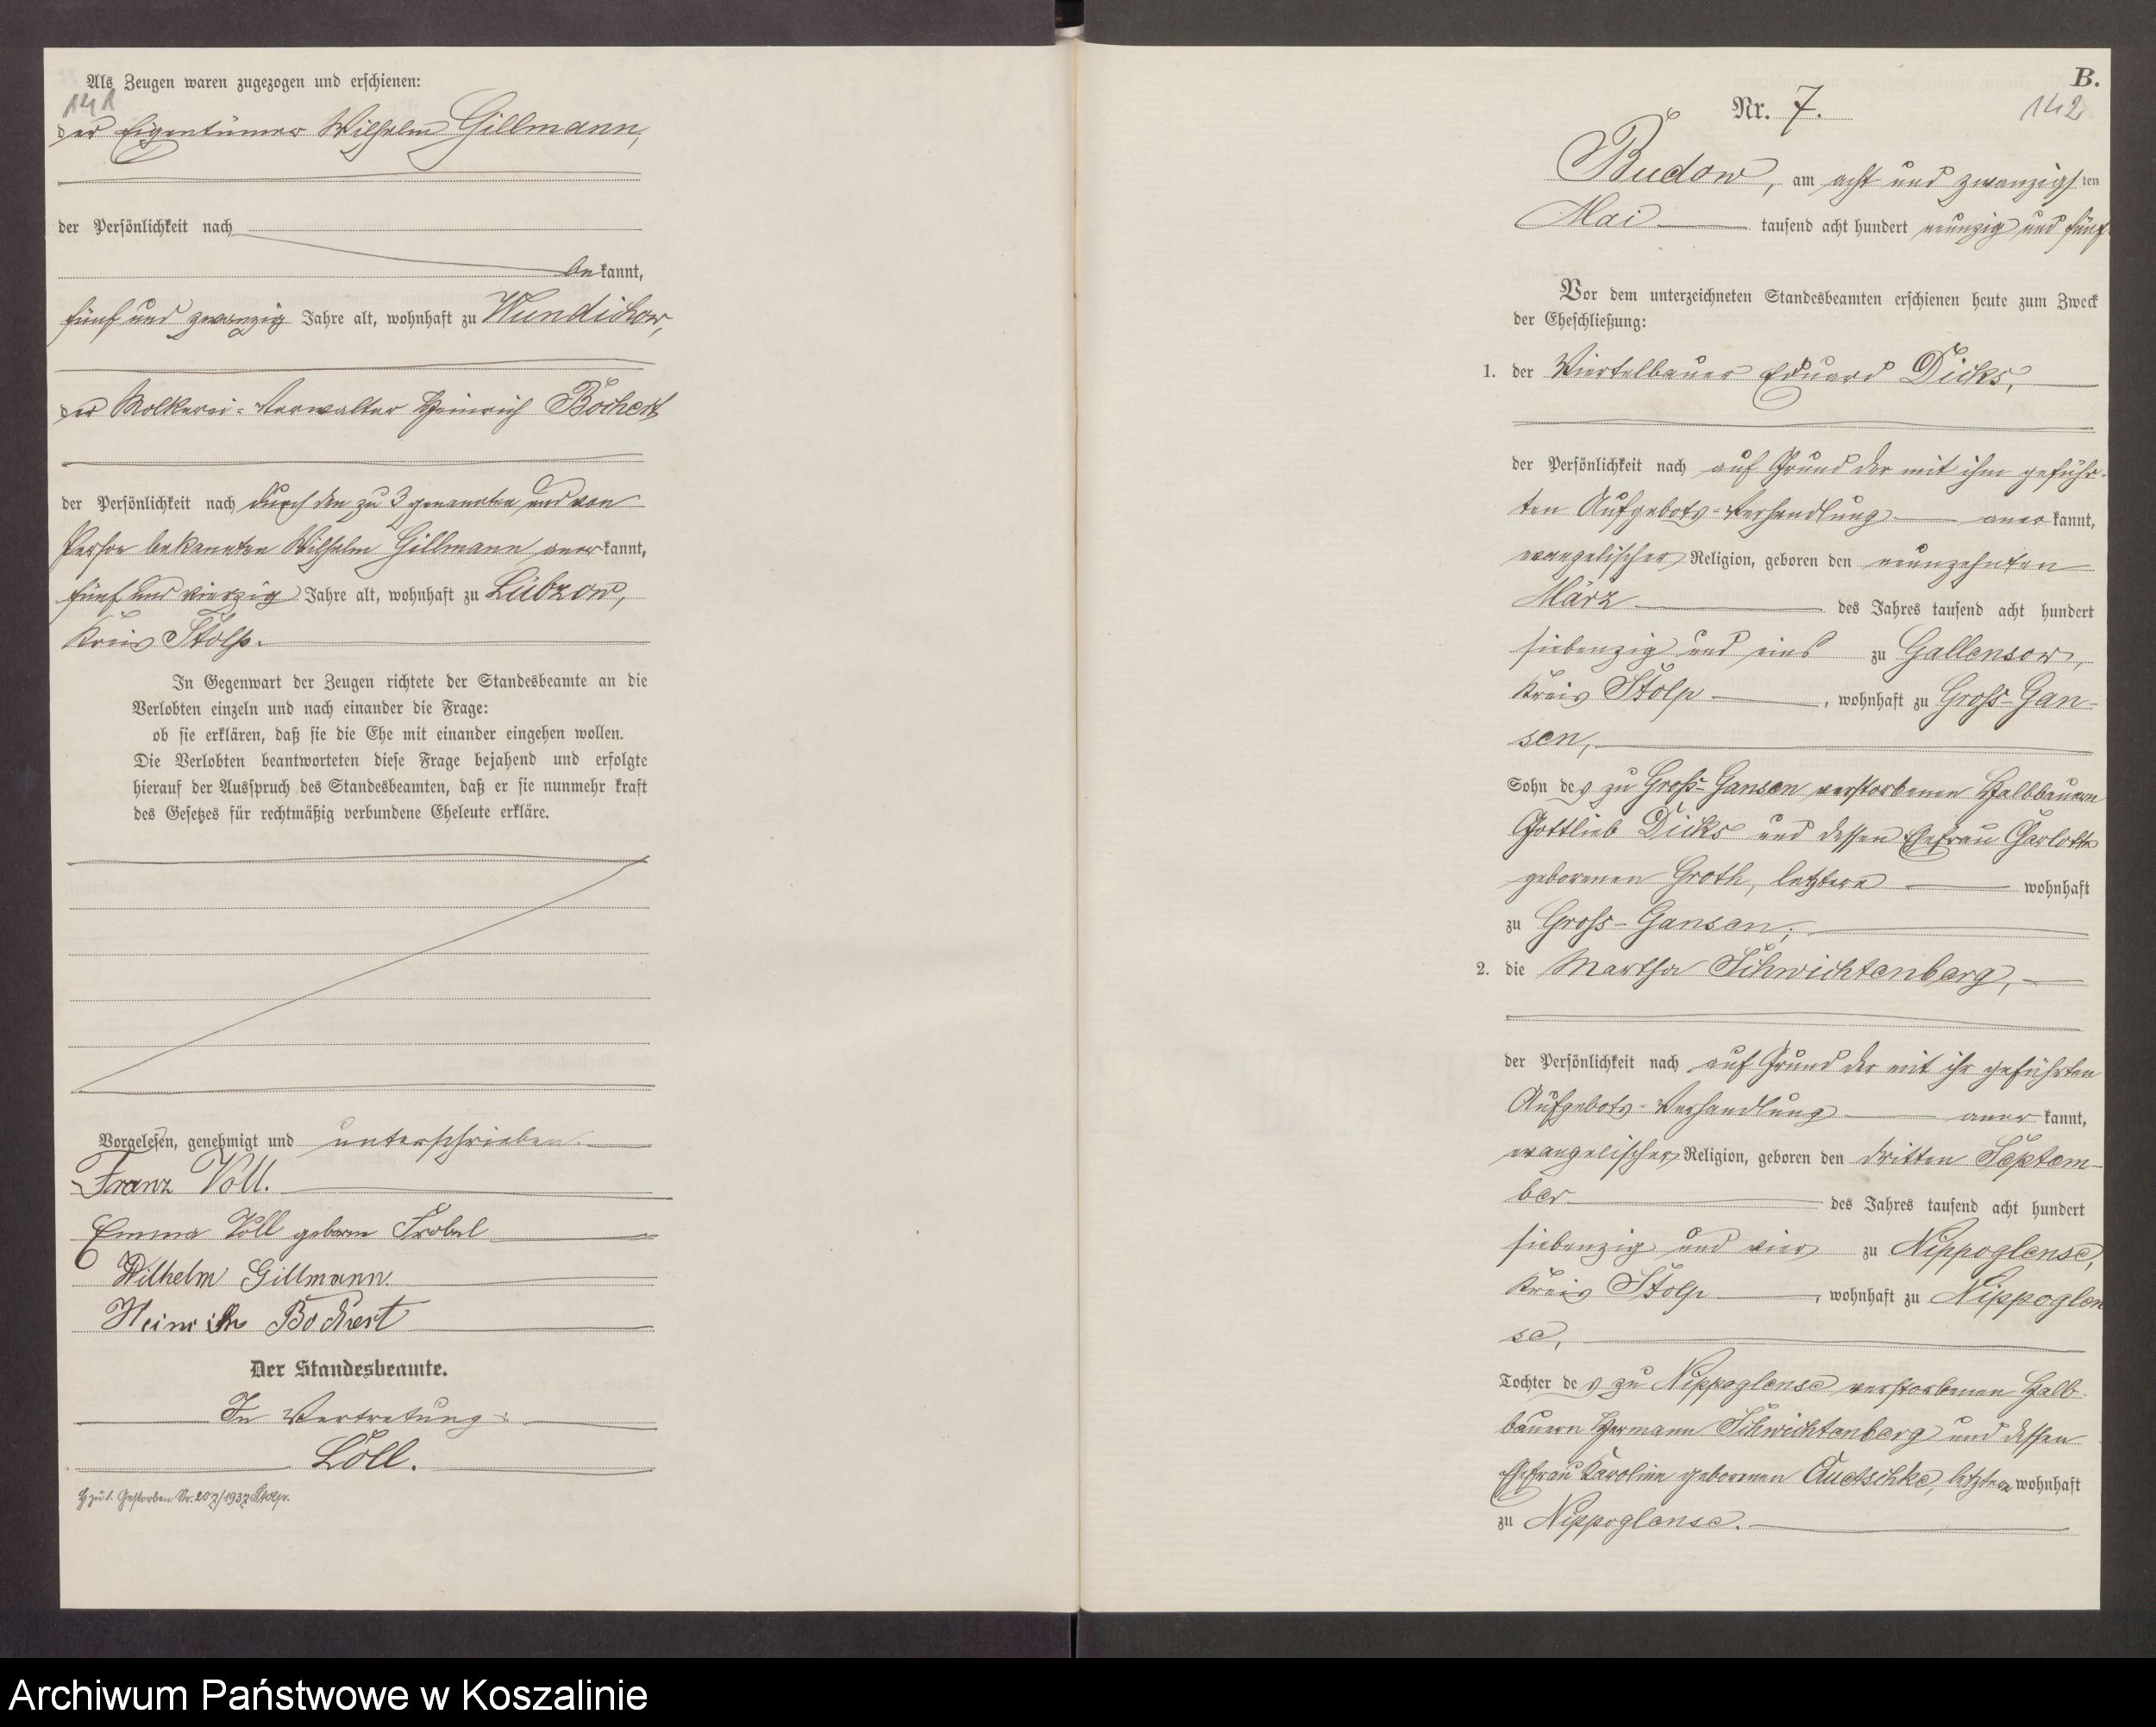 Als Zeugen waren zugezogen und erschienen:
141
der Eigentümer Wilhelm Gillmann,
der Persönlichkeit nach
bekannt,
fünf und zwanzig Jahre alt, wohnhaft zu Wundichow,
der Molkerei-Verwalter Heinrich Bochert
der Persönlichkeit nach durch den zu 3 genannten und von
Person bekannten Wilhelm Gillmann anerkannt,
fünf und vierzig Jahre alt, wohnhaft zu Lübzow,
Kreis Stolp.
In Gegenwart der Zeugen richtete der Standesbeamte an die
Verlobten einzeln und nach einander die Frage:
ob sie erklären, daß sie die Ehe mit einander eingehen wollen.
Die Verlobten beantworteten diese Frage bejahend und erfolgte
hierauf der Ausspruch des Standesbeamten, daß er sie nunmehr kraft
des Gesetzes für rechtmäßig verbundene Eheleute erkläre.
Vorgelesen, genehmigt und unterschrieben.
Franz Voll.
Emma Voll geborne
Wilhelm Gillmann.
Heinrich Bochert
Der Standesbeamte.
In Vertretung:
Löll.
Gestorben Nr. 207/1937 Stolp.
B.
142
Nr. 7.
Budow, am acht und zwanzigsten
Mai tausend acht hundert neunzig und fünf
Vor dem unterzeichneten Standesbeamten erschienen heute zum Zweck
der Eheschließung:
1. der Viertelbauer Eduard Dicks,
der Persönlichkeit nach auf Grund der mit ihm geführ-
ten Aufgebots-Verhandlung anerkannt,
evangelischer Religion, geboren den neunzehnten
März des Jahres tausend acht hundert
siebenzig und eins zu Gallensow,
Kreis Stolp, wohnhaft zu Groß-Gan-
sen,
Sohn des zu Groß-Gansen verstorbenen Halbbauern
Gottlieb Dicks und dessen Ehefrau Charlotte
geborenen Groth, letztere wohnhaft
zu Groß-Gansen;
2. die Martha Schwichtenberg,
der Persönlichkeit nach auf Grund der mit ihr geführten
Aufgebots-Verhandlung anerkannt,
evangelischer Religion, geboren den dritten Septem-
ber des Jahres tausend acht hundert
siebenzig und vier zu Nippoglense,
Kreis Stolp, wohnhaft zu Nippoglen
se,
Tochter des zu Nippoglense verstorbenen Halb-
bauern Hermann Schwichtenberg und dessen
Ehefrau Karoline geborenen Quetschke, letztere wohnhaft
zu Nippoglense.
Archiwum Państwowe w Koszalinie